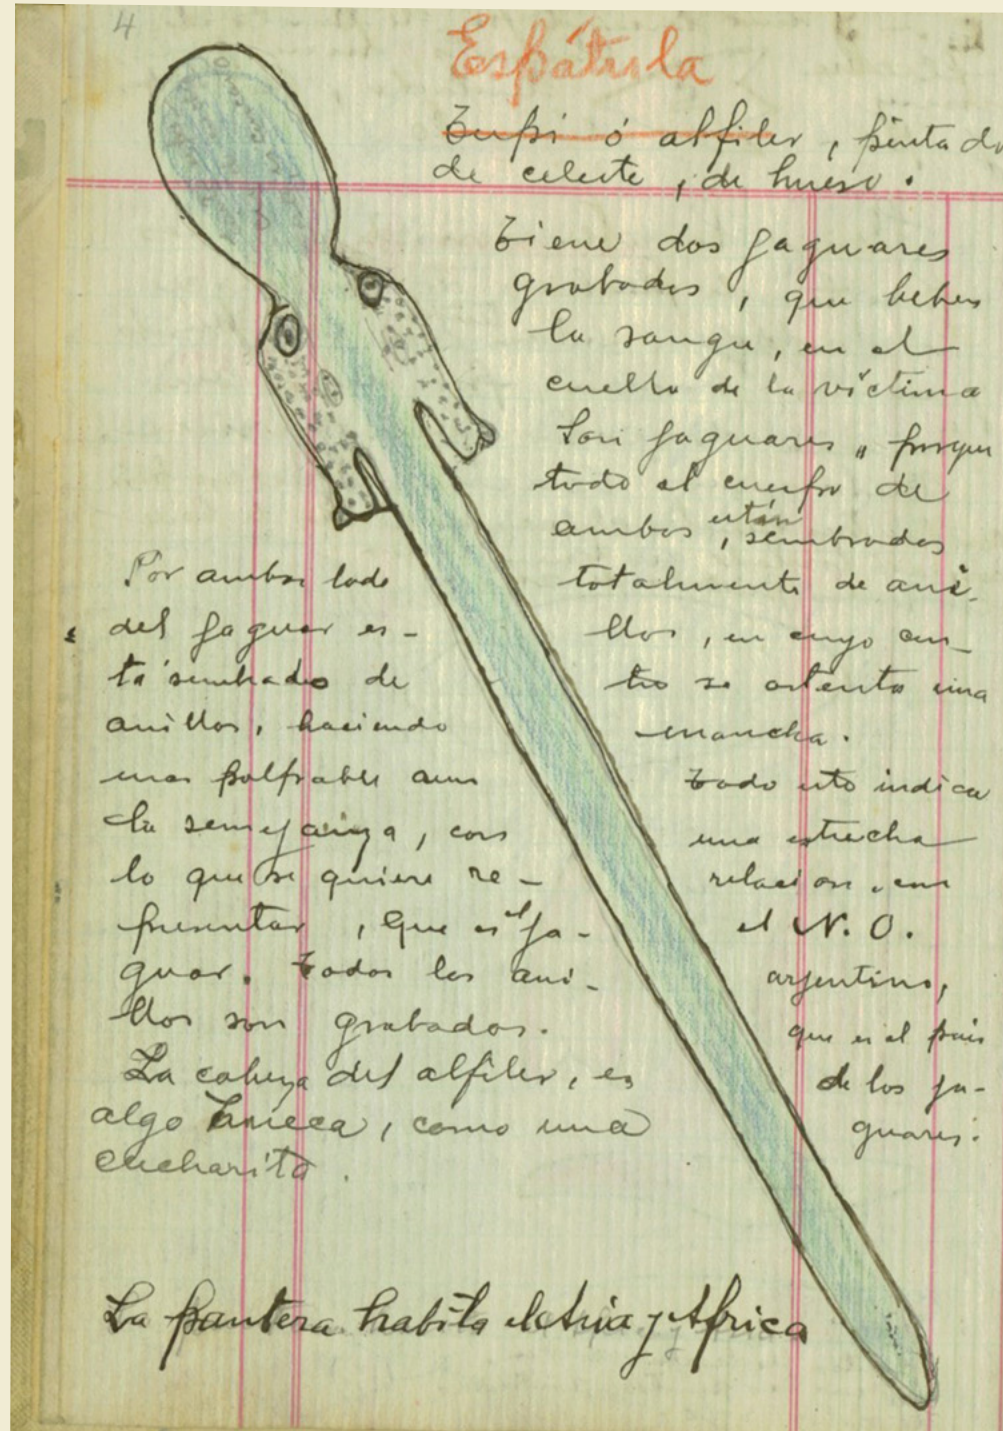 4
Espátula
Tupi ó alfiler, pintado
de celeste, de hueso.
Tiene dos jaguares
grabados, que beben
la sangre, en el
cuello de la víctima
Son jaguares, porque
todo el cuerpo de
ambos, están sembrados
totalmente de ani-
llos, en cuyo cen-
tro se ostenta una
mancha.
Todo esto indica
una estrecha
relacion, con
el N. O.
argentino,
que es el pais
de los ja-
guares.
Por ambos lado
del jaguar es-
tá sembrado de
anillos, haciendo
mas palpable aun
la semejanza, con
lo que se quiere re-
presentar, que es el ja-
guar. Todos los ani-
llos son grabados.
La cabeza del alfiler, es
algo hueca, como una
cucharita.
La pantera habita el Asia y Africa